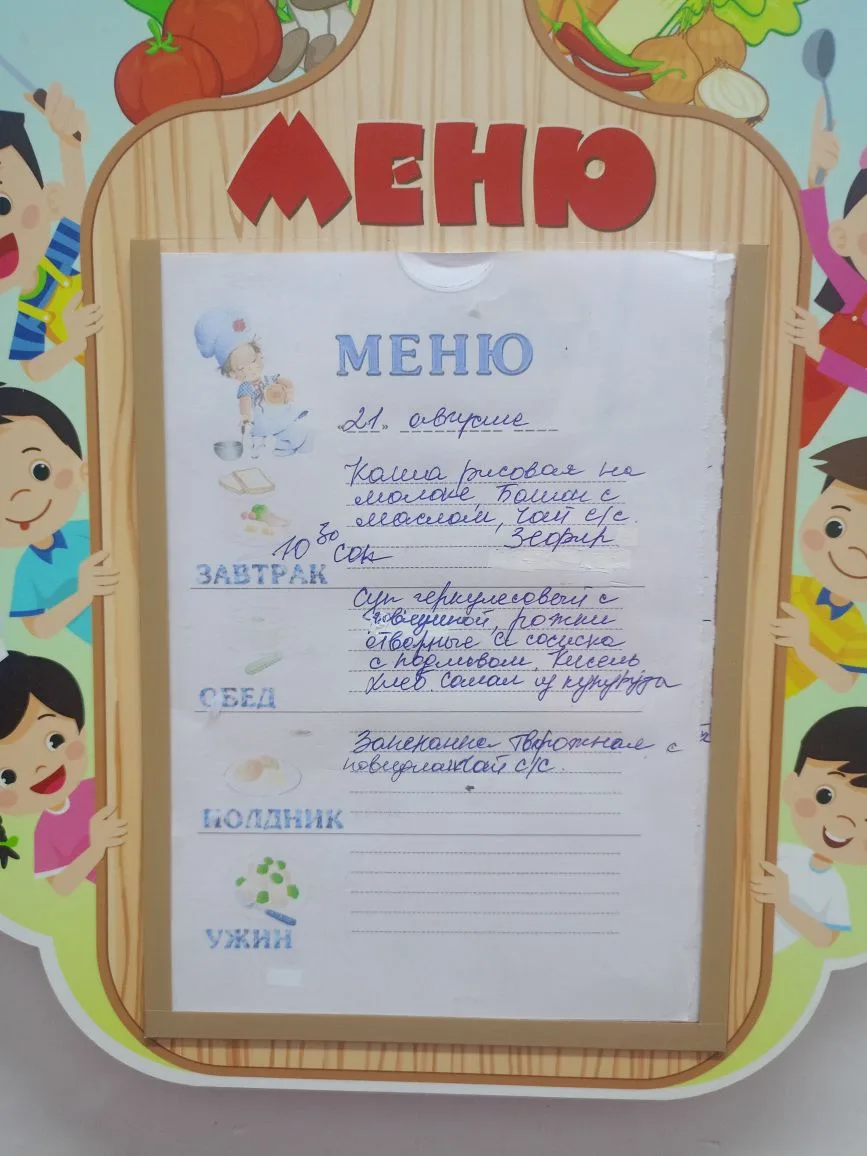 МЕНЮ
МЕНЮ
«21» августа
Каша рисовая на
молоке, Батон с
маслом, чай с/с.
10 30 сок Зефир
ЗАВТРАК
Суп геркулесовый с
говядиной, рожки
отворные с сосиска
с подливом. Кисель
хлеб. Салат из кукурузы
ОБЕД
Запеканка творожная с
повидлом чай с/с.
ПОЛДНИК
УЖИН